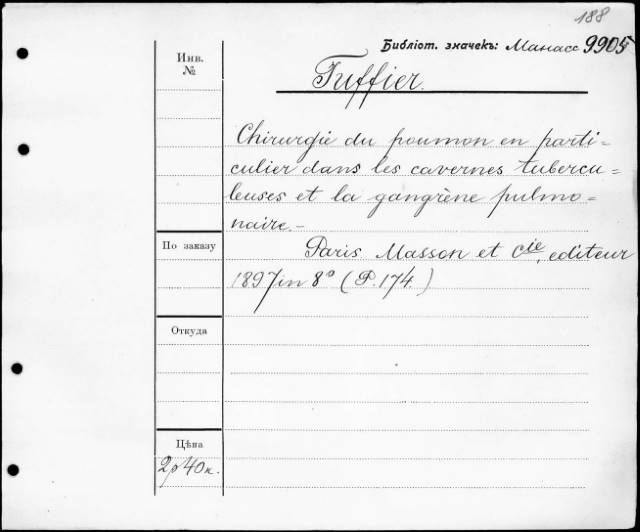 188
Библіот. значекъ: Манасс 9905
Инв.
№
Tuffier.
Chirurgie du poumon en parti=
culier dans les cavernes tubercu=
leuses et la gangrène pulmo=
naire.-
По заказу
Paris. Masson et Cie, editeur
1897 in 8° (P. 174.)
Откуда
Цѣна
2р40к.